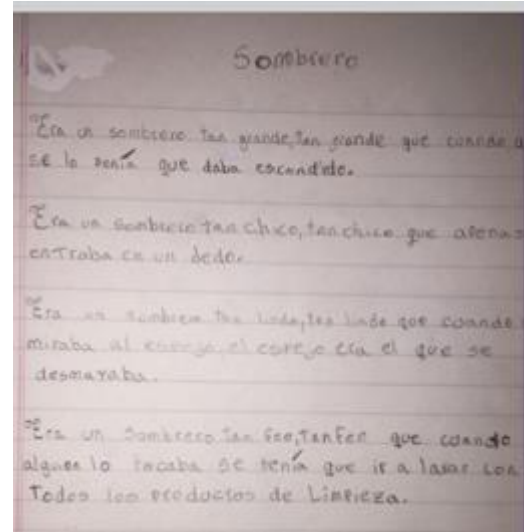 Sombrero
Era un sombrero tan grande, tan grande que cuando
se lo ponía que daba escondido.
Era un sombrero tan chico, tan chico que apenas
entraba en un dedo.
Era un sombrero tan lindo, tan lindo que cuando
miraba al espejo el espejo era el que se
desmayaba.
Era un sombrero tan feo, tan feo que cuando
alguien lo tocaba se tenía que ir a lavar con
Todos los productos de Limpieza.